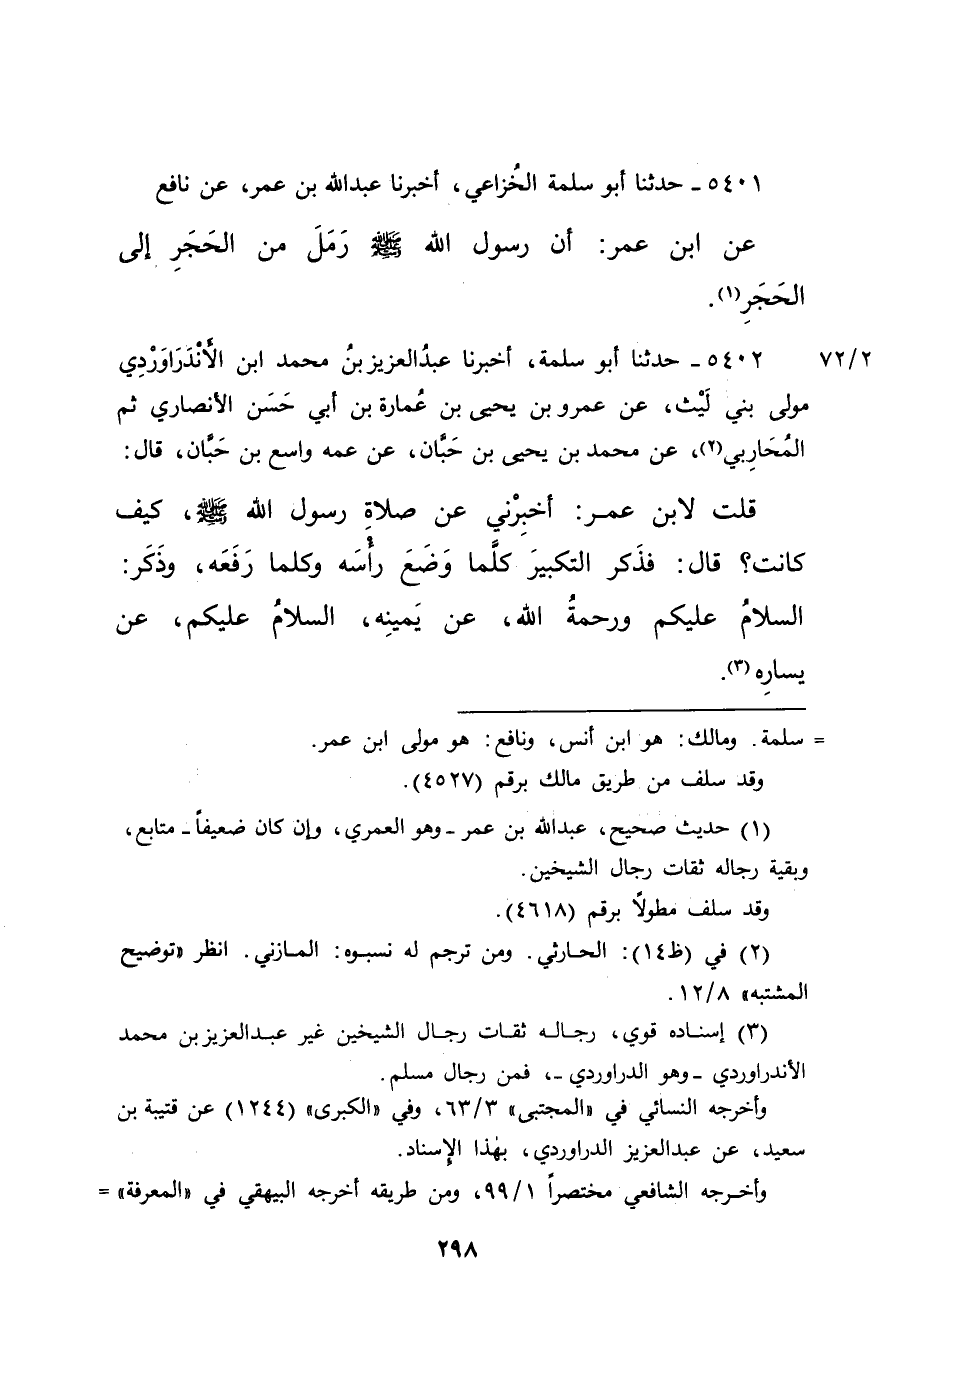 ٥٤٠١ ـ حدثنا أبو سلمة الخُزاعي، أخبرنا عبدالله بن عمر، عن نافع
عن ابن عمر: أن رسول الله ﷺ رَمَلَ من الحَجَرِ إلى
الحَجَرِ(١).
٧٢/٢ ٥٤٠٢ ـ حدثنا أبو سلمة، أخبرنا عبدُالعزيز بنُ محمد ابن الأَنْدَرَاوَرْدِي
مولى بني لَيْث، عن عمرو بن يحيى بن عُمارة بن أبي حَسَن الأنصاري ثم
المُحَارِبي(٢)، عن محمد بن يحيى بن حَبَّان، عن عمه واسع بن حَبَّان، قال:
قلت لابن عمـر: أخبِرْني عن صلاةِ رسول الله ﷺ، كيف
كانت؟ قال: فذَكر التكبيرَ كلَّما وَضَعَ رأْسَه وكلما رَفَعَه، وذَكَر:
السلامُ عليكم ورحمةُ الله، عن يَمينِه، السلامُ عليكم، عن
يسارِه(٣).
= سلمة. ومالك: هو ابن أنس، ونافع: هو مولى ابن عمر.
وقد سلف من طريق مالك برقم (٤٥٢٧).
(١) حديث صحيح، عبدالله بن عمر ـ وهو العمري، وإن كان ضعيفاً ـ متابع،
وبقية رجاله ثقات رجال الشيخين.
وقد سلف مطولاً برقم (٤٦١٨).
(٢) في (ظ١٤): الحـارثي. ومن ترجم له نسبـوه: المـازني. انظر «توضيح
المشتبه» ١٢/٨.
(٣) إسنـاده قوي، رجـالـه ثقـات رجـال الشيخين غير عبـدالعزيز بن محمد
الأندراوردي ـ وهو الدراوردي ـ، فمن رجال مسلم.
وأخرجه النسائي في «المجتبى» ٦٣/٣، وفي «الكبرى» (١٢٤٤) عن قتيبة بن
سعيد، عن عبدالعزيز الدراوردي، بهٰذا الإسناد.
وأخـرجه الشافعي مختصراً ٩٩/١، ومن طريقه أخرجه البيهقي في «المعرفة» =
٢٩٨